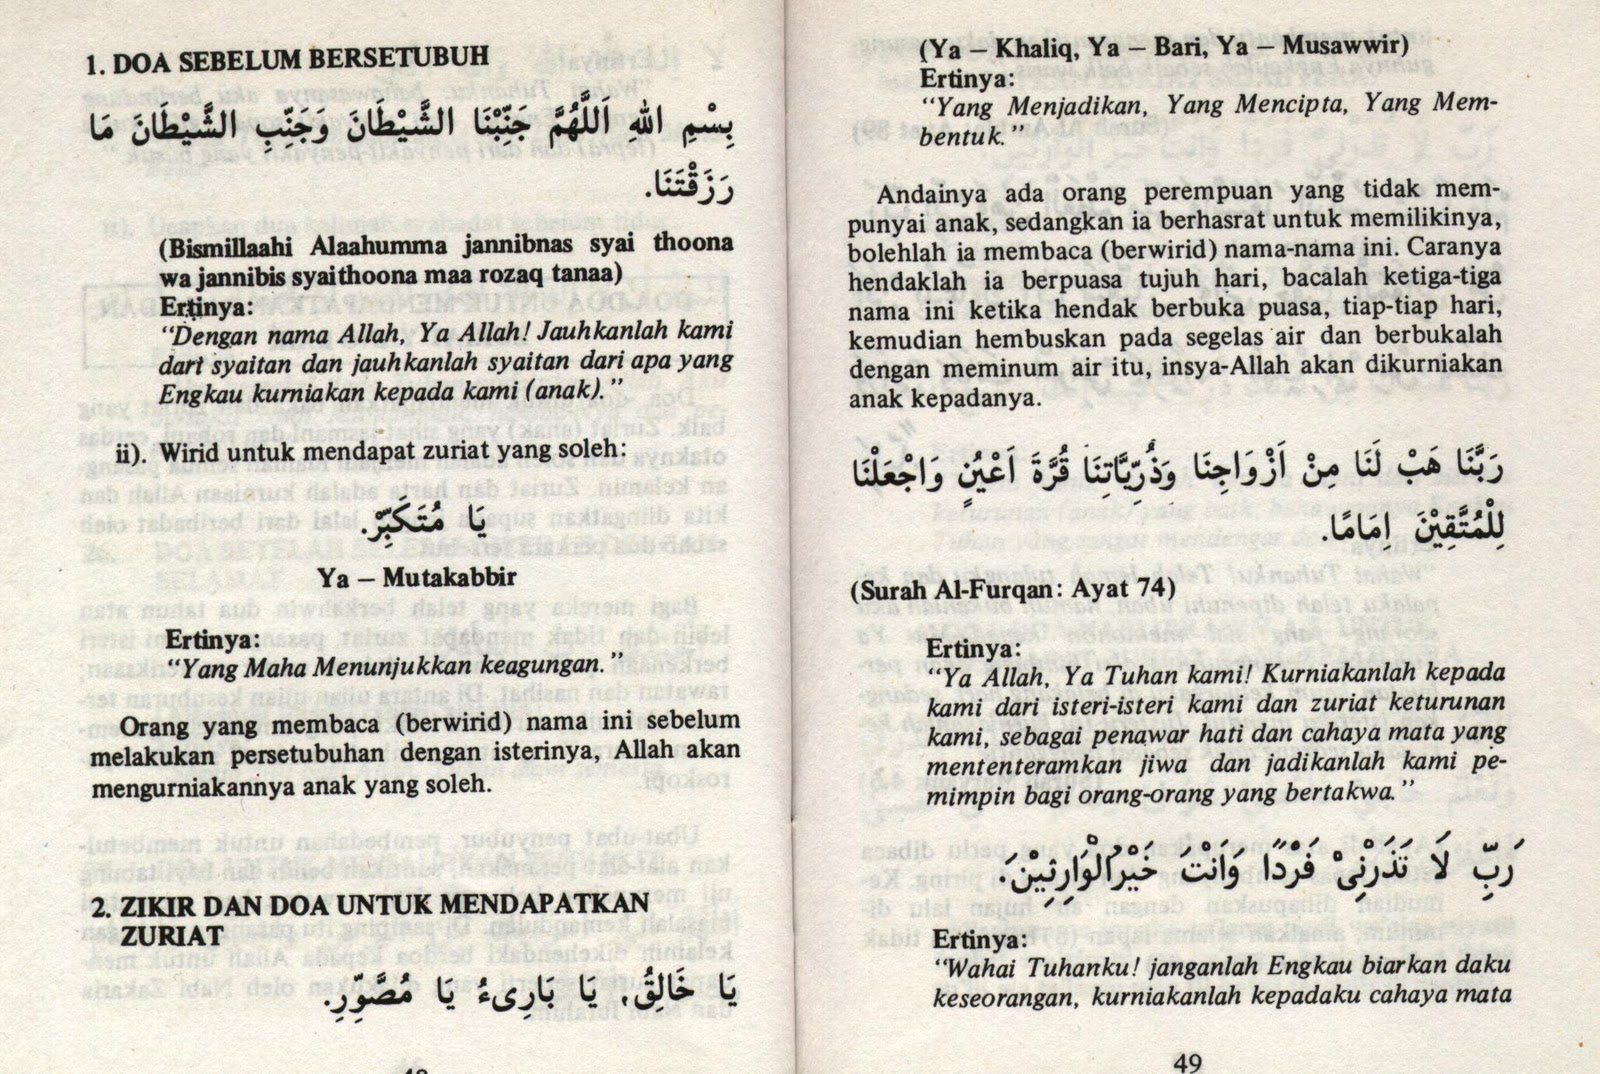 1. DOA SEBELUM BERSETUBUH
بِسْمِ اللهِ اَللَّهُمَّ جَنِّبْنَا الشَّيْطَانَ وَجَنِّبِ الشَّيْطَانَ مَا
رَزَقْتَنَا.
(Bismillaahi Alaahumma jannibnas syai thoona
wa jannibis syaithoona maa rozaq tanaa)
Ertinya:
“Dengan nama Allah, Ya Allah! Jauhkanlah kami
dari syaitan dan jauhkanlah syaitan dari apa yang
Engkau kurniakan kepada kami (anak).”
ii). Wirid untuk mendapat zuriat yang soleh:
يَا مُتَكَبِّرْ.
Ya – Mutakabbir
Ertinya:
“Yang Maha Menunjukkan keagungan.”
Orang yang membaca (berwirid) nama ini sebelum
melakukan persetubuhan dengan isterinya, Allah akan
mengurniakannya anak yang soleh.
2. ZIKIR DAN DOA UNTUK MENDAPATKAN
ZURIAT
يَا خَالِقُ، يَا بَارِىءُ يَا مُصَّوِّرِ.
(Ya – Khaliq, Ya – Bari, Ya – Musawwir)
Ertinya:
“Yang Menjadikan, Yang Mencipta, Yang Mem-
bentuk.”
Andainya ada orang perempuan yang tidak mem-
punyai anak, sedangkan ia berhasrat untuk memilikinya,
bolehlah ia membaca (berwirid) nama-nama ini. Caranya
hendaklah ia berpuasa tujuh hari, bacalah ketiga-tiga
nama ini ketika hendak berbuka puasa, tiap-tiap hari,
kemudian hembuskan pada segelas air dan berbukalah
dengan meminum air itu, insya-Allah akan dikurniakan
anak kepadanya.
رَبَّنَا هَبْ لَنَا مِنْ اَزْوَاجِنَا وَذُرِّيَّاتِنَا قُرَّةَ اَعْيُنٍ وَاجْعَلْنَا
لِلْمُتَّقِيْنَ اِمَامًا.
(Surah Al-Furqan: Ayat 74)
Ertinya:
“Ya Allah, Ya Tuhan kami! Kurniakanlah kepada
kami dari isteri-isteri kami dan zuriat keturunan
kami, sebagai penawar hati dan cahaya mata yang
mententeramkan jiwa dan jadikanlah kami pe-
mimpin bagi orang-orang yang bertakwa.”
رَبِّ لَا تَذَرْنِىْ فَرْدًا وَاَنْتَ خَيْرُالْوَارِثِيْنَ.
Ertinya:
“Wahai Tuhanku! janganlah Engkau biarkan daku
keseorangan, kurniakanlah kepadaku cahaya mata
49